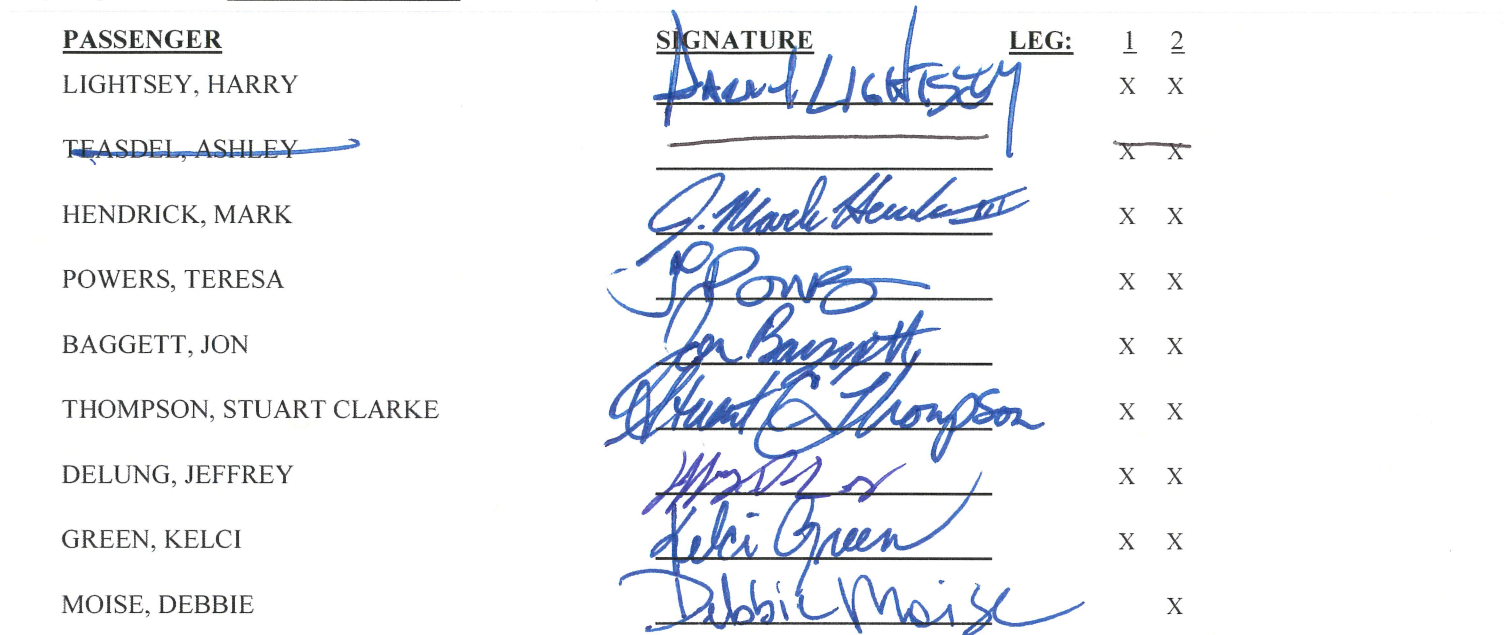 PASSENGER SIGNATURE LEG: 1 2
LIGHTSEY, HARRY LIGHTSEY X X
TEASDEL, ASHLEY X X
HENDRICK, MARK J. Mark III X X
POWERS, TERESA X X
BAGGETT, JON Jon Baggett X X
THOMPSON, STUART CLARKE Stuart C Thompson X X
DELUNG, JEFFREY X X
GREEN, KELCI Kelci Green X X
MOISE, DEBBIE Debbie Moise X